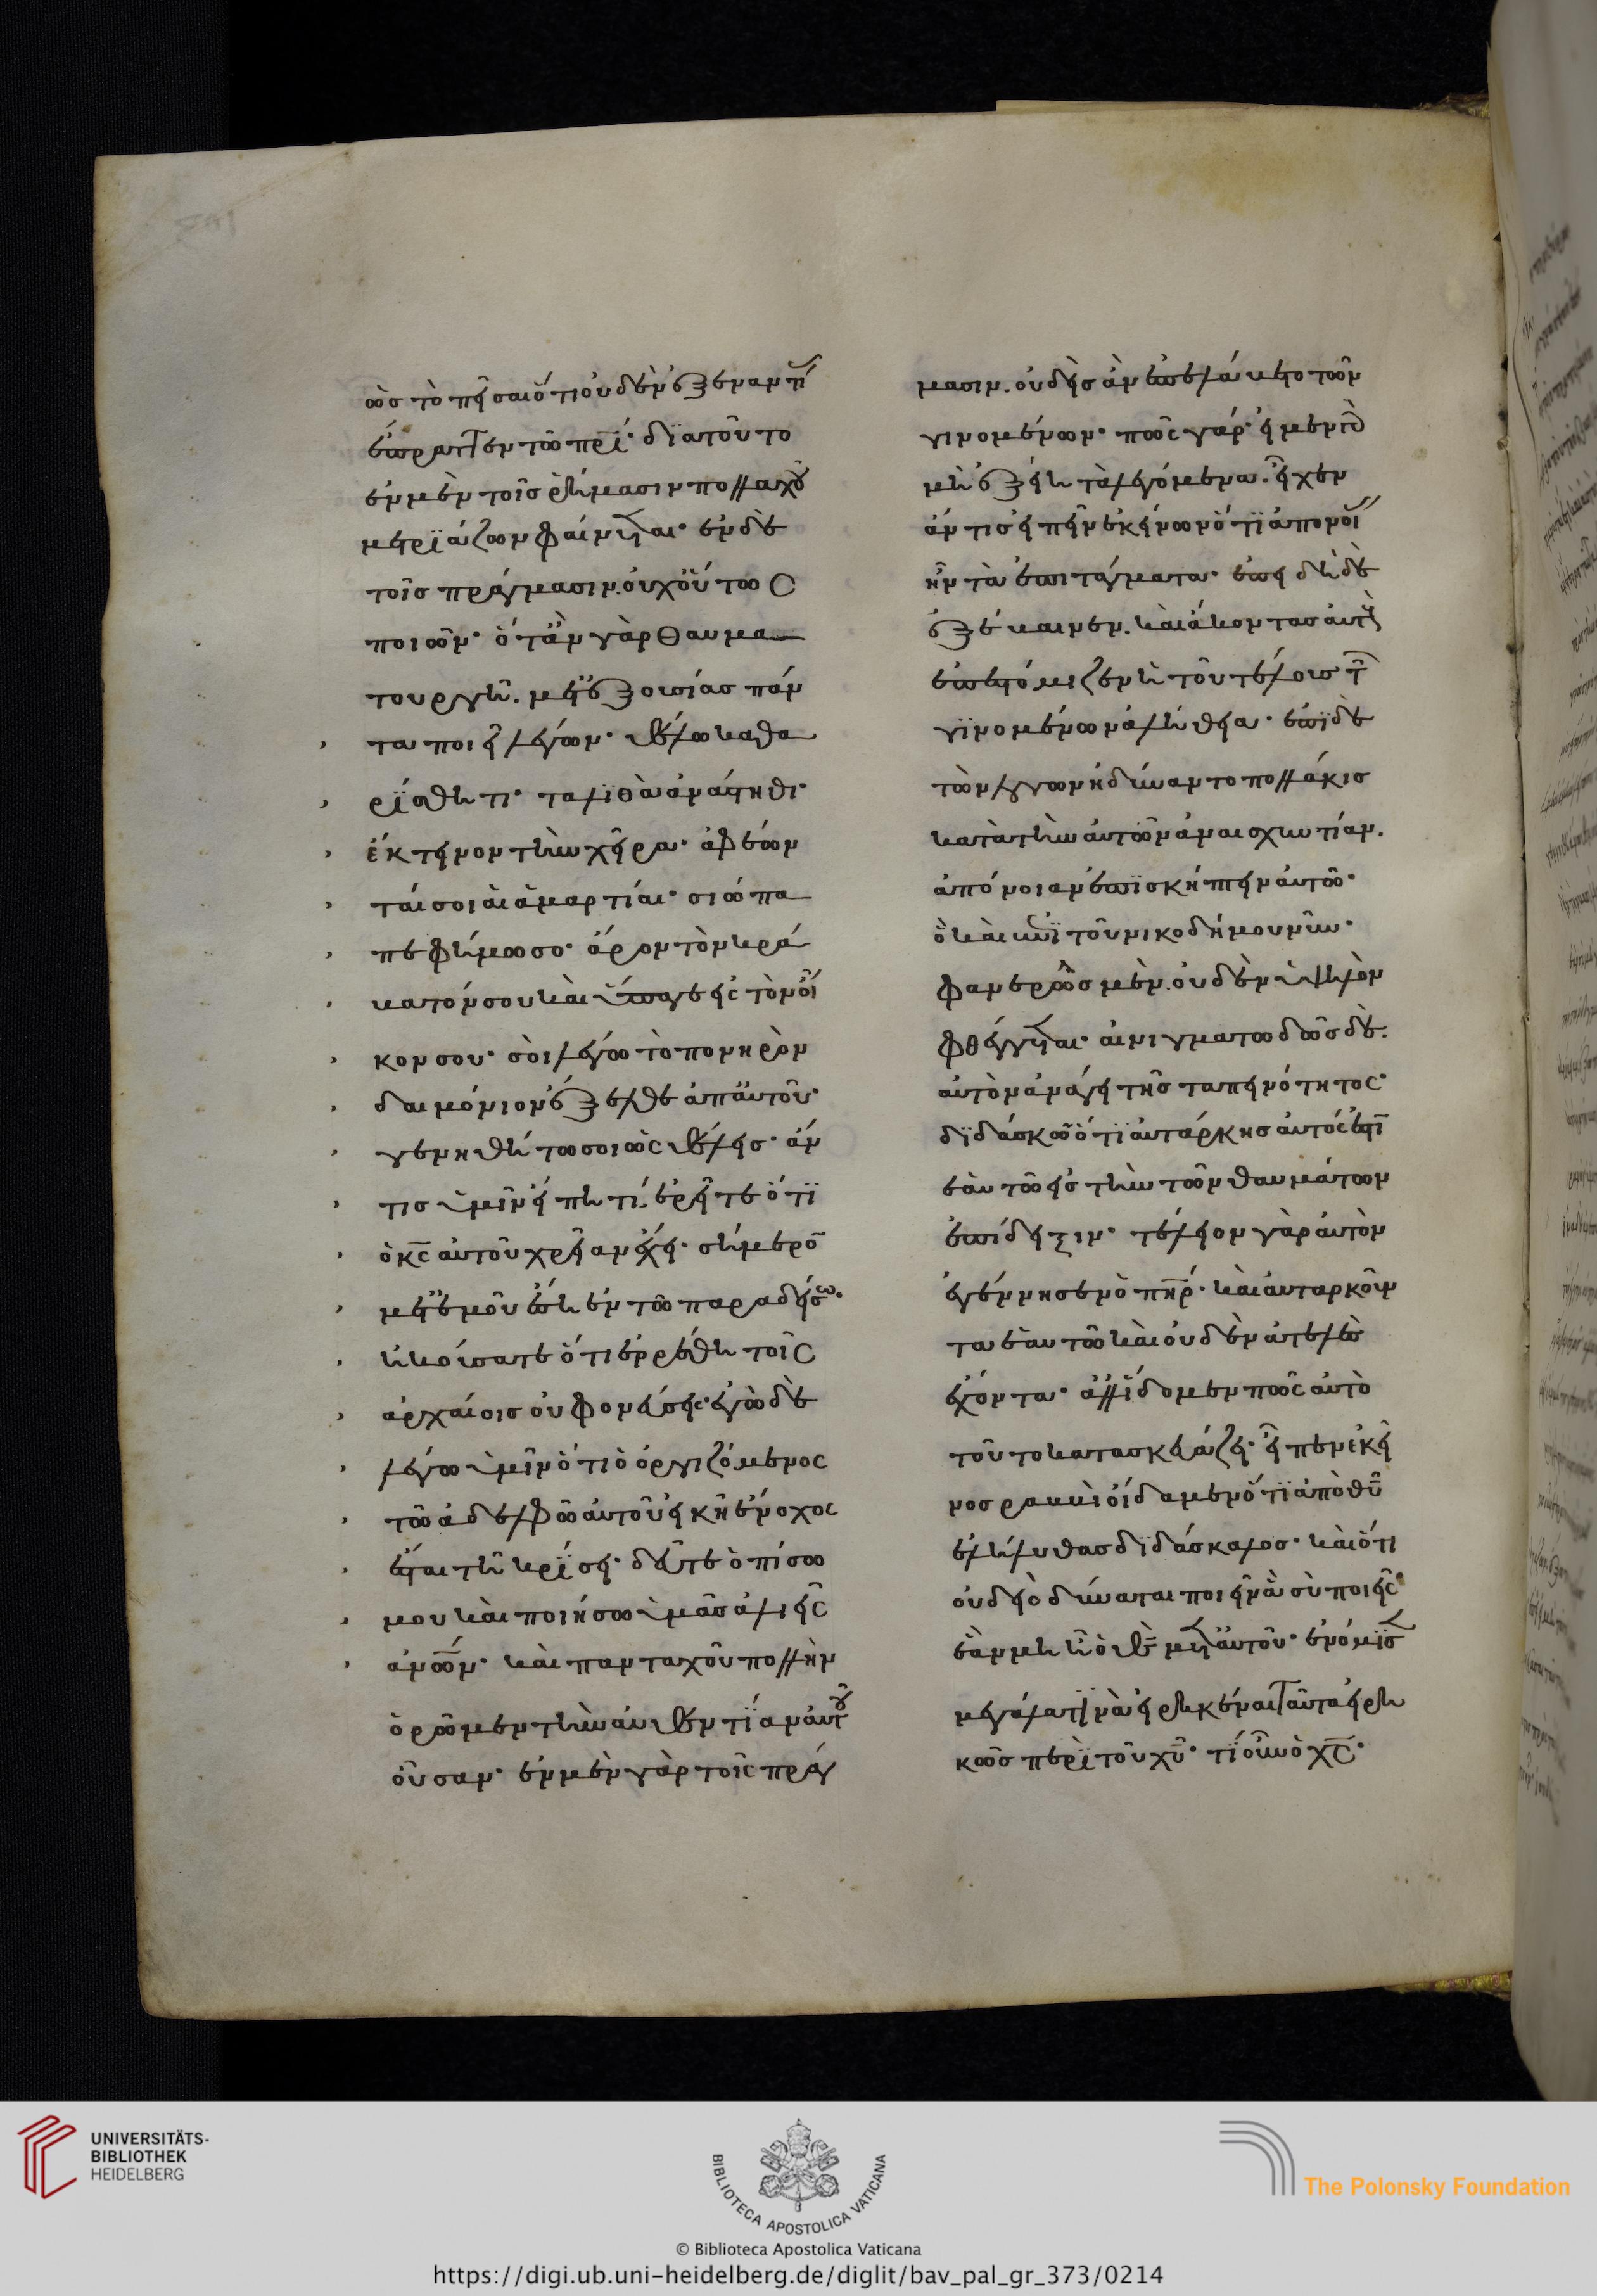 ὡς τὸ πεῖσαι ὅτι οὐδὲν ἐξεναντί
ἔπραττεν τῶ πρί· διατοῦτο
ἐν μὲν τοῖς ῥήμασιν πολλαχοῦ
μετριάζων φαίνεται· ἐν δὲ
τοῖς πράγμασιν. οὐχ οὕτως
ποιῶν· ὅτ' ἂν γὰρ θαυμα
τουργῆ. μετ' ἐξουσίας πάν
τα ποιεῖ λέγων· θέλω καθα
ρίσθητι· ταλιθὰ ἀνάστηθι·
ἔκτεινον τὴν χεῖρα· ἀφέων
ταί σοι αἱ ἁμαρτίαι· σιώπα
πεφήμωσο· ἄρον τὸν κρά
βατόν σου καὶ ὕπαγε εἰς τὸν οἶ
κον σου· σοὶ λέγω τὸ πονηρὸν
δαιμόνιον ἔξελθε ἀπ' αὐτοῦ·
γενηθήτω σοι ὡς θέλεις· ἄν
τις ὑμῖν εἴπη τί. ἐρεῖτε ὅτι
ὁ κς αὐτοῦ χρείαν ἔχει· σήμερον
μετ' ἐμοῦ ἔση ἐν τῶ παραδείσω·
ἠκούσατε ὅτι ἐρρέθη τοῖς
ἀρχαίοις οὐ φονεύσεις· ἐγὼ δὲ
λέγω ὑμῖν ὅτι ὁ ὀργιζόμενος
τῶ ἀδελφῶ αὐτοῦ εἰκῆ ἔνοχος
ἔσται τῆ κρίσει· δεῦτε ὀπίσω
μου καὶ ποιήσω ὑμᾶς ἁλιεῖς
ἀνῶν· καὶ πανταχοῦ πολλὴν
ὁρῶμεν τὴν αὐθεντίαν αὐτοῦ
οὖσαν· ἐν μὲν γὰρ τοῖς πράγ
μασιν. οὐδεὶς ἂν ἐπελάβετο τῶν
γινομένων· πῶς γάρ· εἰ μὲν
μὴ ἐξέβη τὰ λεγόμενα. εἶχεν
ἄν τις εἰπεῖν ἐκείνων ὅτι ἀπονοί
ἦν τὰ ἐπιτάγματα· ἐπειδὴ δὲ
ἐξέβαινεν. καὶ ἄκοντας αὐτοὺς
ἐπεστόμιζεν ἡ τοῦ τέλους τῶν
γινομένων ἀλήθεια· ἐπὶ δὲ
τῶν λόγων ἠδύναντο πολλάκις
κατὰ τὴν αὐτῶν ἀναισχυντίαν.
ἀπόνοιαν ἐπισκήπτειν αὐτῶ·
ὃ καὶ ἐπὶ τοῦ νικοδήμου νῦν·
φανερῶς μὲν. οὐδὲν ὑψηλὸν
φθέγγεται· αἰνιγματωδῶς δὲ.
αὐτὸν ἀνάγει τῆς ταπεινότητος·
διδάσκων ὅτι αὐτάρκης αὐτός ἐστι
ἑαυτῶ εἰς τὴν τῶν θαυμάτων
ἐπίδειξιν· τέλειον γὰρ αὐτὸν
ἐγέννησεν ὁ πηρ· καὶ αὐταρκοῦν
τα ἑαυτῶ καὶ οὐδὲν ἀτελὲς
ἔχοντα· ἀλλ' ἴδομεν πῶς αὐτὸ
τοῦτο κατασκευάζει· εἶπεν ἐκεῖ
νος ραββὶ οἴδαμεν ὅτι ἀπὸ θυ
ἐλήλυθας διδάσκαλος· καὶ ὅτι
οὐδεὶς δύναται ποιεῖν ἃ σὺ ποιεῖς
ἐὰν μὴ ἦ ὁ θς μετ' αὐτοῦ· ἐνόμισε
μεγάλα τινὰ εἰρηκέναι ταῦτα εἰρη
κὼς περὶ τοῦ χυ· τί οὖν ὁ χς·
UNIVERSITÄTS-
BIBLIOTHEK
HEIDELBERG
BIBLIOTECA APOSTOLICA VATICANA
The Polonsky Foundation
© Biblioteca Apostolica Vaticana
https://digi.ub.uni-heidelberg.de/diglit/bav_pal_gr_373/0214